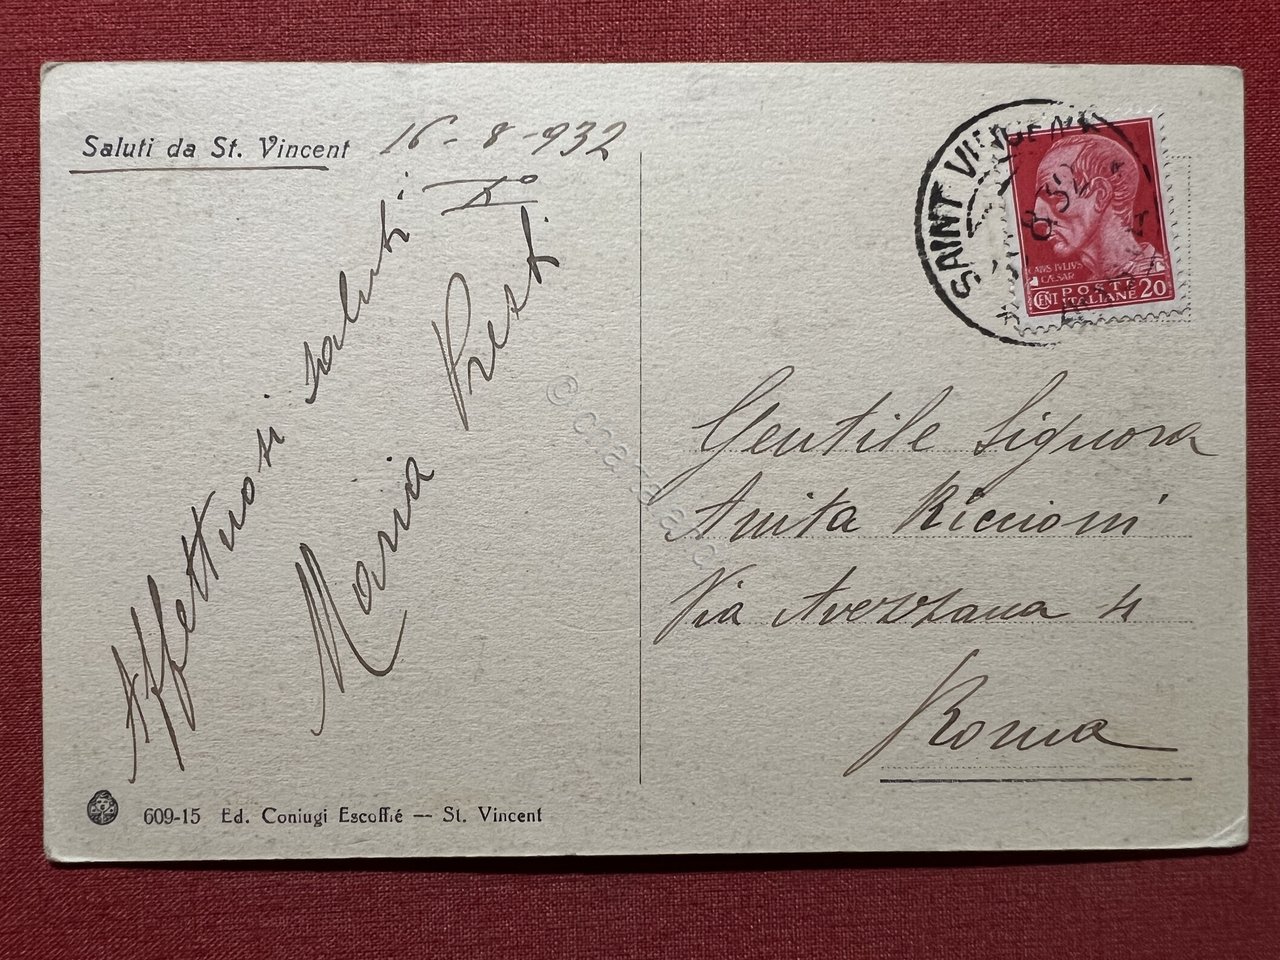 Saluti da St. Vincent
16-8-932
X°
Affettuosi saluti
Maria Presti
SAINT VINCENT
CAIVS IVLIVS
CÆSAR
POSTE
CENT ITALIANE 20
Gentile Signora
Anita Riccioni
Via Avezzana 4
Roma
609-15 Ed. Coniugi Escoffié — St. Vincent